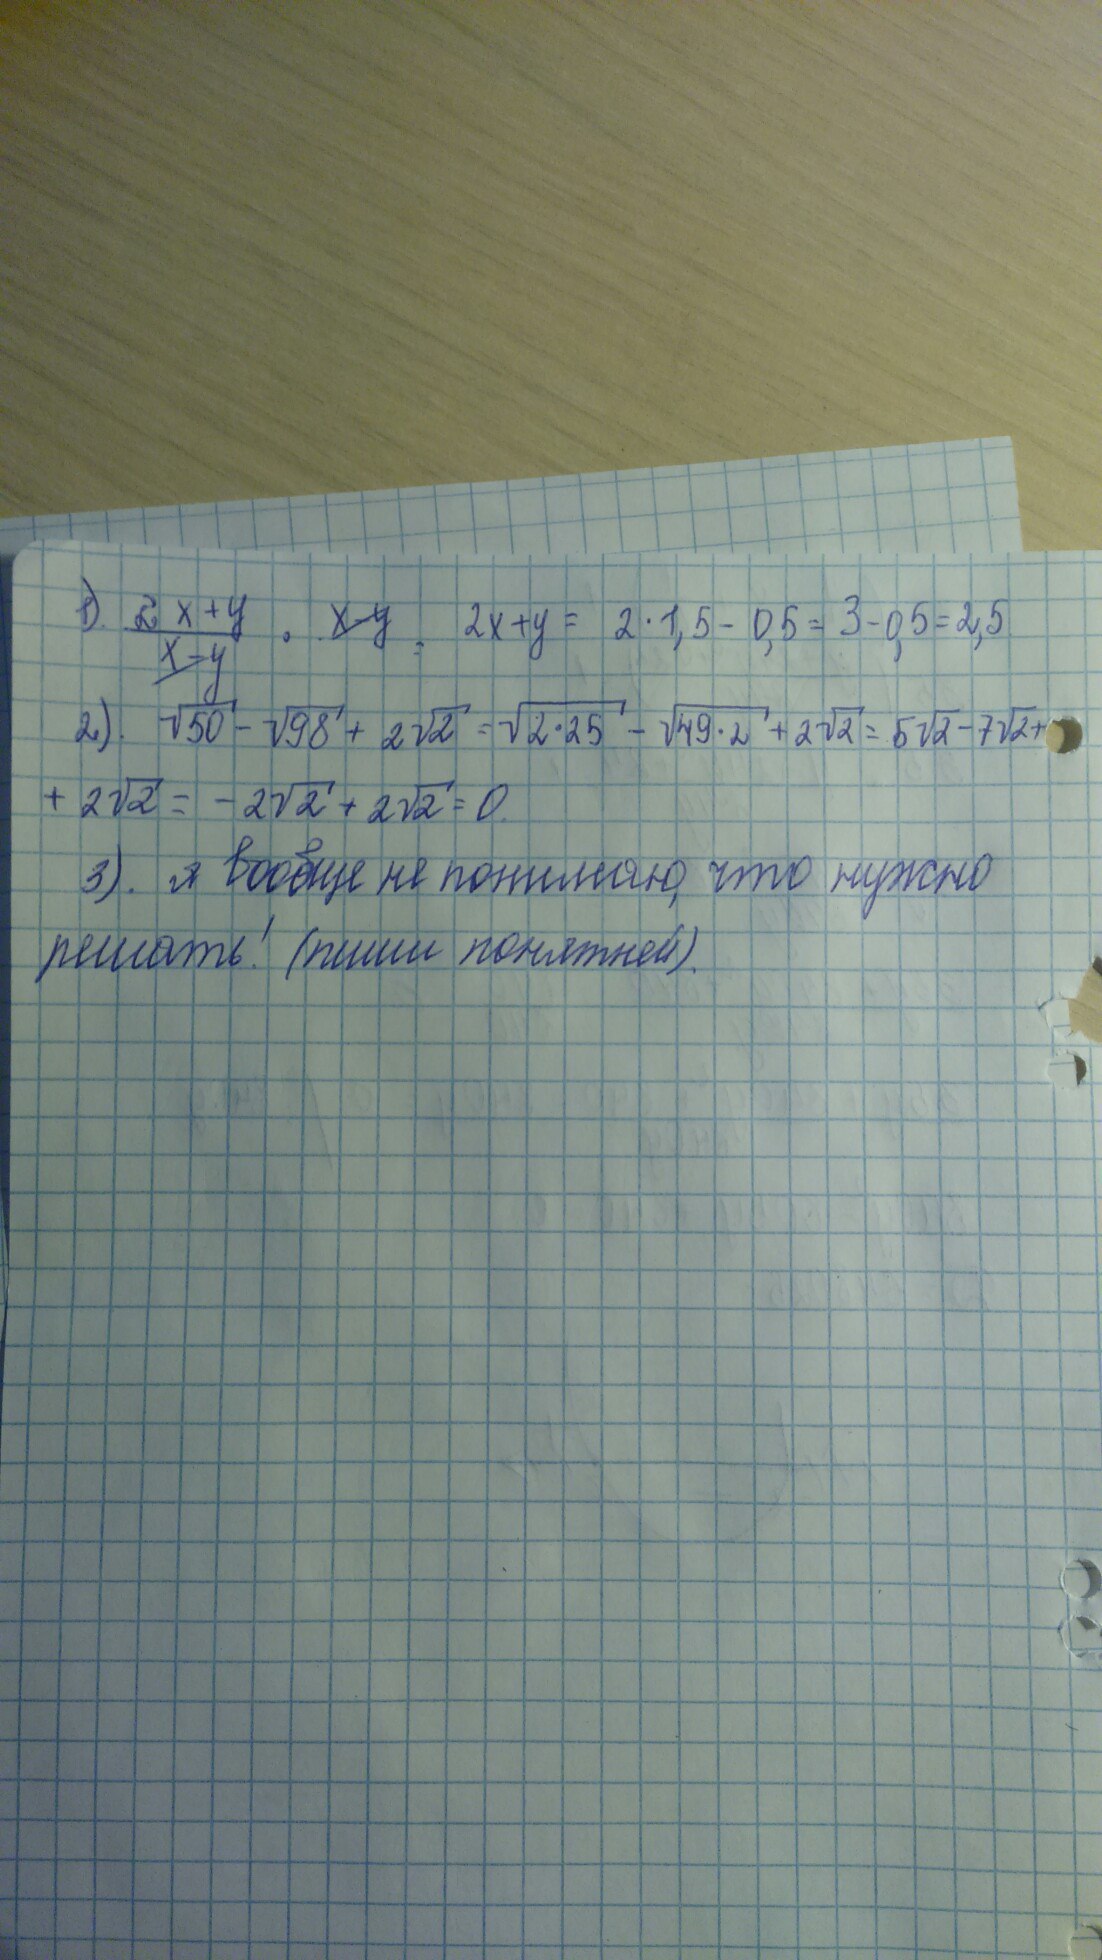 1). 2x+y/x-y · x-y = 2x+y = 2·1,5 - 0,5 = 3-0,5=2,5
2). √50 - √98 + 2√2 = √2·25 - √49·2 + 2√2 = 5√2 - 7√2 +
+ 2√2 = -2√2 + 2√2 = 0.
3). я вообще не понимаю, что нужно
решать! (пиши понятней).